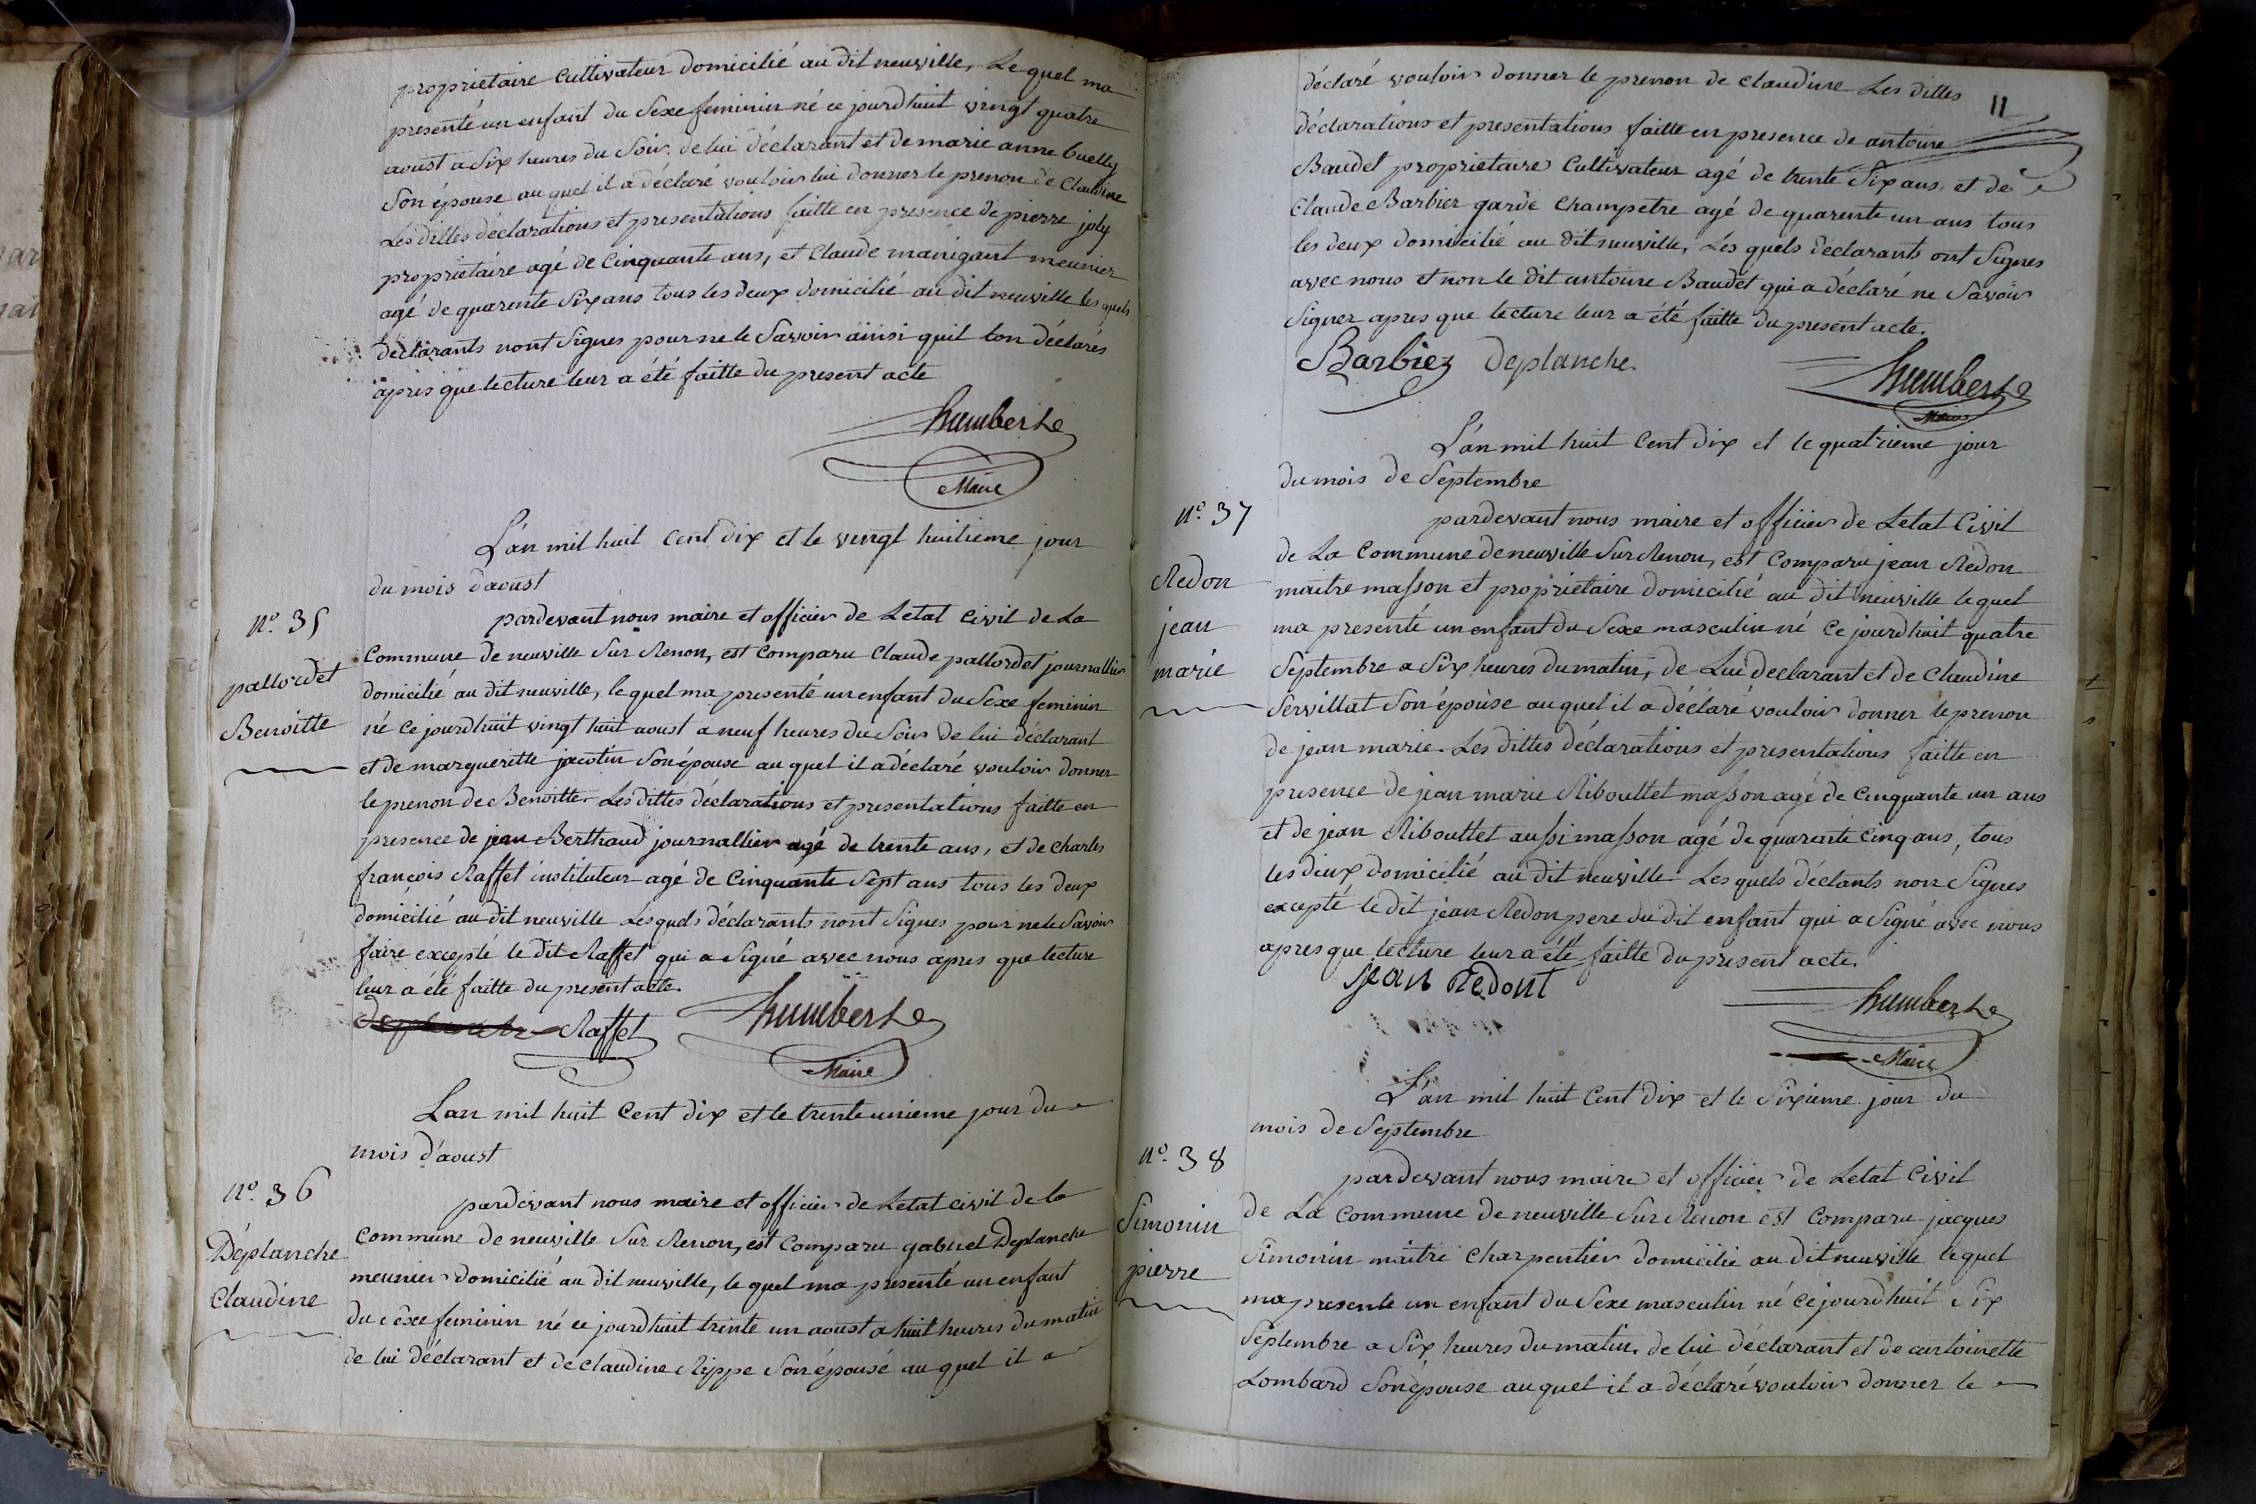 proprietaire Cultivateur domicilié au dit neuville, Le quel ma
presenté un enfant du Sexe feminin né ce jourdhuit vingt quatre
aoust a Six heures du Soir de lui déclarant et de marie anne buelly
Son épouse au quel il a déclaré vouloir lui donner le prenon de Claudine
Les dittes déclarations et presentations faitte en presence de pierre joly
proprietaire agé de Cinquante ans, et Claude manigant meunier
agé de quarente Six ans tous les deux domicilié au dit neuville les quels
déclarants nont Signes pour ne le Savoir ainsi quil lon déclarés
après que lecture leur a été faitte du present acte
humbert
Maire
L'an mil huit cent dix et le vingt huitieme jour
du mois d'aoust
n°. 35
pallordet
Benoitte
pardevant nous maire et officier de Letat Civil de La
Commune de neuville Sur Renon, est Comparu Claude pallordet journallier
domicilié au dit neuville, le quel ma presenté un enfant du Sexe feminin
né ce jourdhuit vingt huit aoust a neuf heures du Soir de lui déclarant
et de marguerite jacotin Son épouse au quel il a déclaré vouloir donner
le prenon de Benoitte Les dittes déclarations et presentations faitte en
presence de jean Berthaud journallier agé de trente ans, et de charles
françois Raffet instituteur agé de Cinquante Sept ans tous les deux
domicilié au dit neuville Les quels déclarants nont Signes pour ne le Savoir
faire excepté le dit Raffet qui a Signé avec nous apres que lecture
leur a été faitte du present acte.
Raffet humbert
Maire
Lan mil huit Cent dix et le trente unieme jour du
mois d'aoust
n°. 36
Deplanche
Claudine
pardevant nous maire et officier de Letat civil de la
Commune de neuville Sur Renon, est Comparu gabriel Deplanche
meunier domicilié au dit neuville, le quel ma presenté un enfant
du Sexe feminin né ce jourdhuit trente un aoust a huit heures du matin
de lui déclarant et de claudine Rippe Son épouse au quel il a
11
déclaré vouloir donner le prenon de Claudine Les dittes
déclarations et presentations faitte en presence de antoine
Baudet proprietaire Cultivateur agé de trente Six ans, et de
Claude Barbier garde Champetre agé de quarente un ans tous
les deux domicilié au dit neuville, Les quels declarants ont Signes
avec nous et non le dit antoine Baudet qui a déclaré ne Savoir
Signer apres que lecture leur a été faitte du present acte.
Barbier Deplanche. humbert
Maire
L'an mil huit Cent dix et le quatrieme jour
du mois de Septembre
n°. 37
Redon
jean
marie
pardevant nous maire et officier de Letat Civil
de La Commune de neuville Sur Renon, est Comparu jean Redon
maitre masson et proprietaire domicilié au dit neuville le quel
ma presenté un enfant du Sexe masculin né Ce jourdhuit quatre
Septembre a Six heures du matin, de Lui declarant et de Claudine
Servillat Son épouse au quel il a déclaré vouloir donner le prenon
de jean marie. Les dittes déclarations et presentations faitte en
presence de jean marie Ribouttet masson agé de Cinquante un ans
et de jean Ribouttet aussi masson agé de quarente Cinq ans, tous
les deux domicilié au dit neuville Les quels déclants non Signes
excepté le dit jean Redon pere du dit enfant qui a Signé avec nous
apres que lecture leur a été faitte du present acte.
jean Redont
humbert
Maire
L'an mil huit Cent dix et le Sixieme jour du
mois de Septembre
n°. 38
Simonin
pierre
pardevant nous maire et officier de Letat Civil
de La Commune de neuville Sur Renon est Comparu jacques
Simonin maitre Charpentier domicilié au dit neuville le quel
ma presente un enfant du Sexe masculin né Ce jourdhuit Six
Septembre a Six heures du matin. de lui déclarant et de antoinette
Lombard Son épouse au quel il a déclaré vouloir donner le